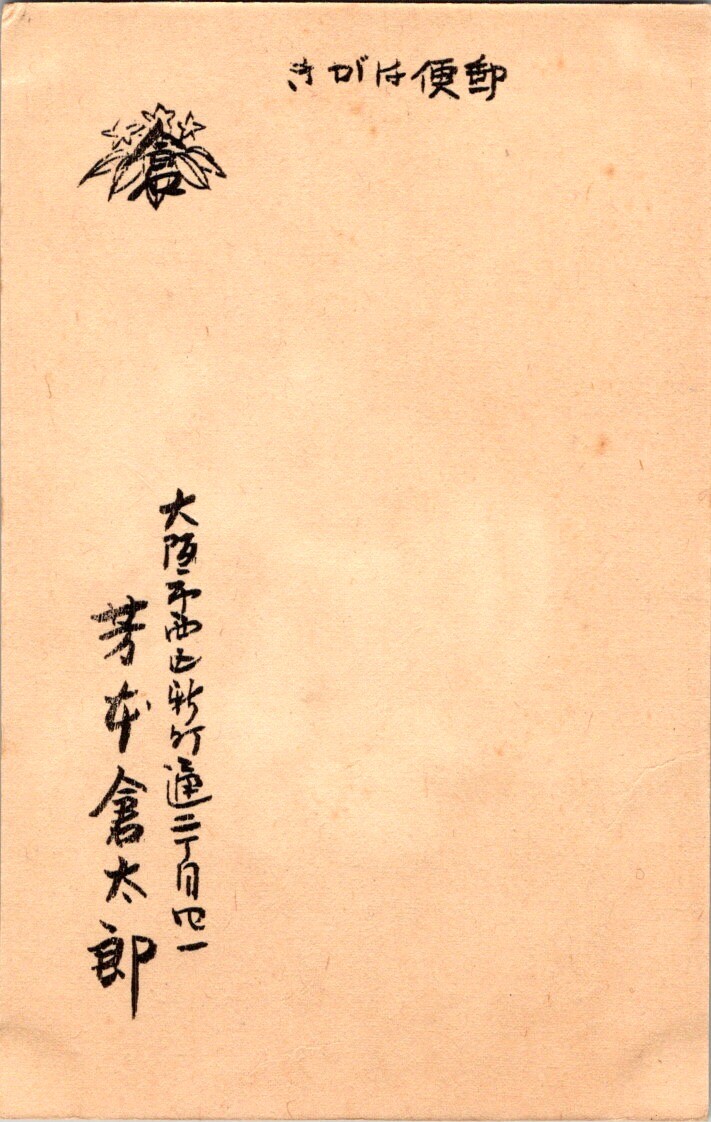 郵便はがき
倉
大阪市西区新町通二丁目四一
芳本倉太郎